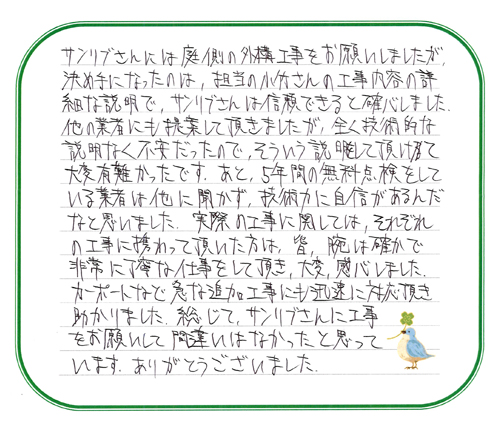 サンリブさんには庭側の外構工事をお願いしましたが、
決め手になったのは、担当の小分さんの工事内容の詳
細な説明で、サンリブさんは信頼できると確心しました.
他の業者にも提案して頂きましたが、全く技術的な
説明なく不安だったので、そういう説明して頂けて
大変有難かったです. あと、5年間の無料点検をして
いる業者は他に聞かず、技術力に自信があるんだ
なと思いました. 実際の工事に関しては、それぞれ
の工事に携わって頂いた方は、皆、腕は確かで
非常に丁寧な仕事をして頂き、大変、感心しました.
カーポートなど急な追加工事にも迅速に対応頂き
助かりました. 総じて、サンリブさんに工事
をお願いして間違いはなかったと思って
います. ありがとうございました.